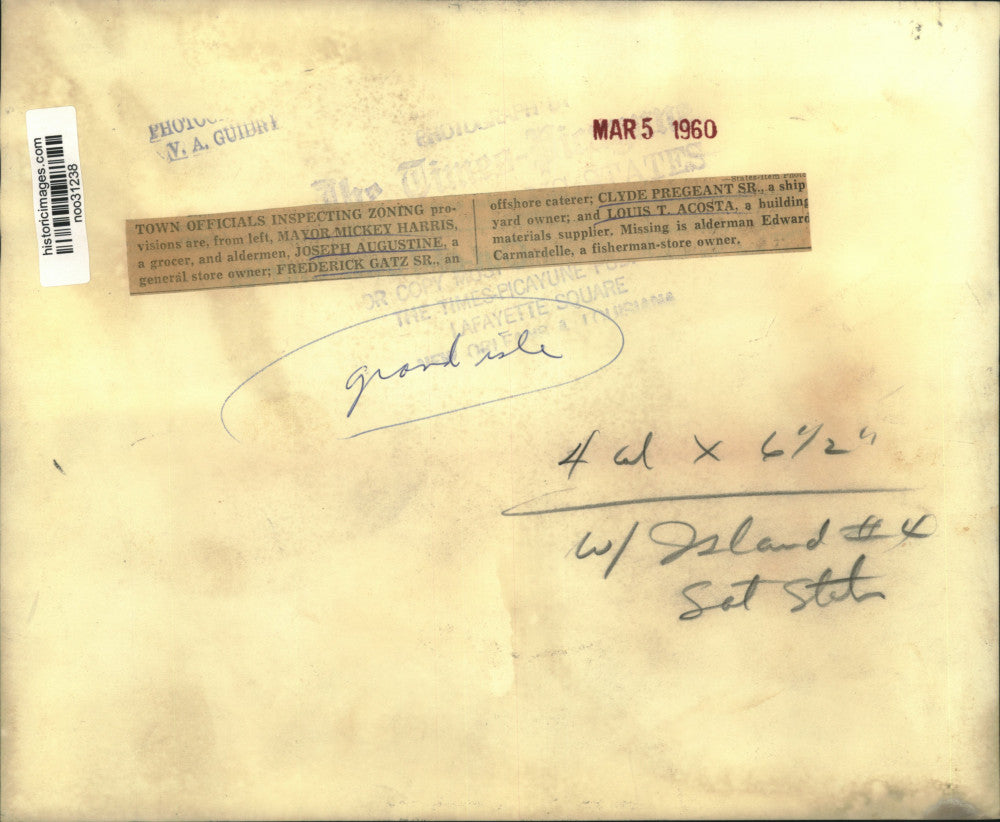 historicimages.com
noo31238
V. A. GUIDRY
MAR 5 1960
—States-Item Photo
TOWN OFFICIALS INSPECTING ZONING pro-
visions are, from left, MAYOR MICKEY HARRIS,
a grocer, and aldermen, JOSEPH AUGUSTINE, a
general store owner; FREDERICK GATZ SR., an
offshore caterer; CLYDE PREGEANT SR., a ship
yard owner; and LOUIS T. ACOSTA, a building
materials supplier. Missing is alderman Edward
Carmardelle, a fisherman-store owner.
OR COPY
THE TIMES-PICAYUNE
LAFAYETTE SQUARE
NEW ORLEANS LOUISIANA
grand isle
4 col X 6 1/2"
w/ Island #4
Sat States